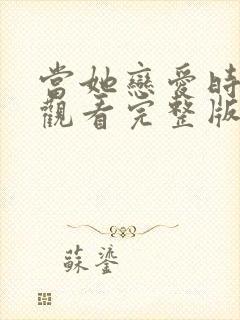 當她戀愛時
觀看完整版
蘇鎏